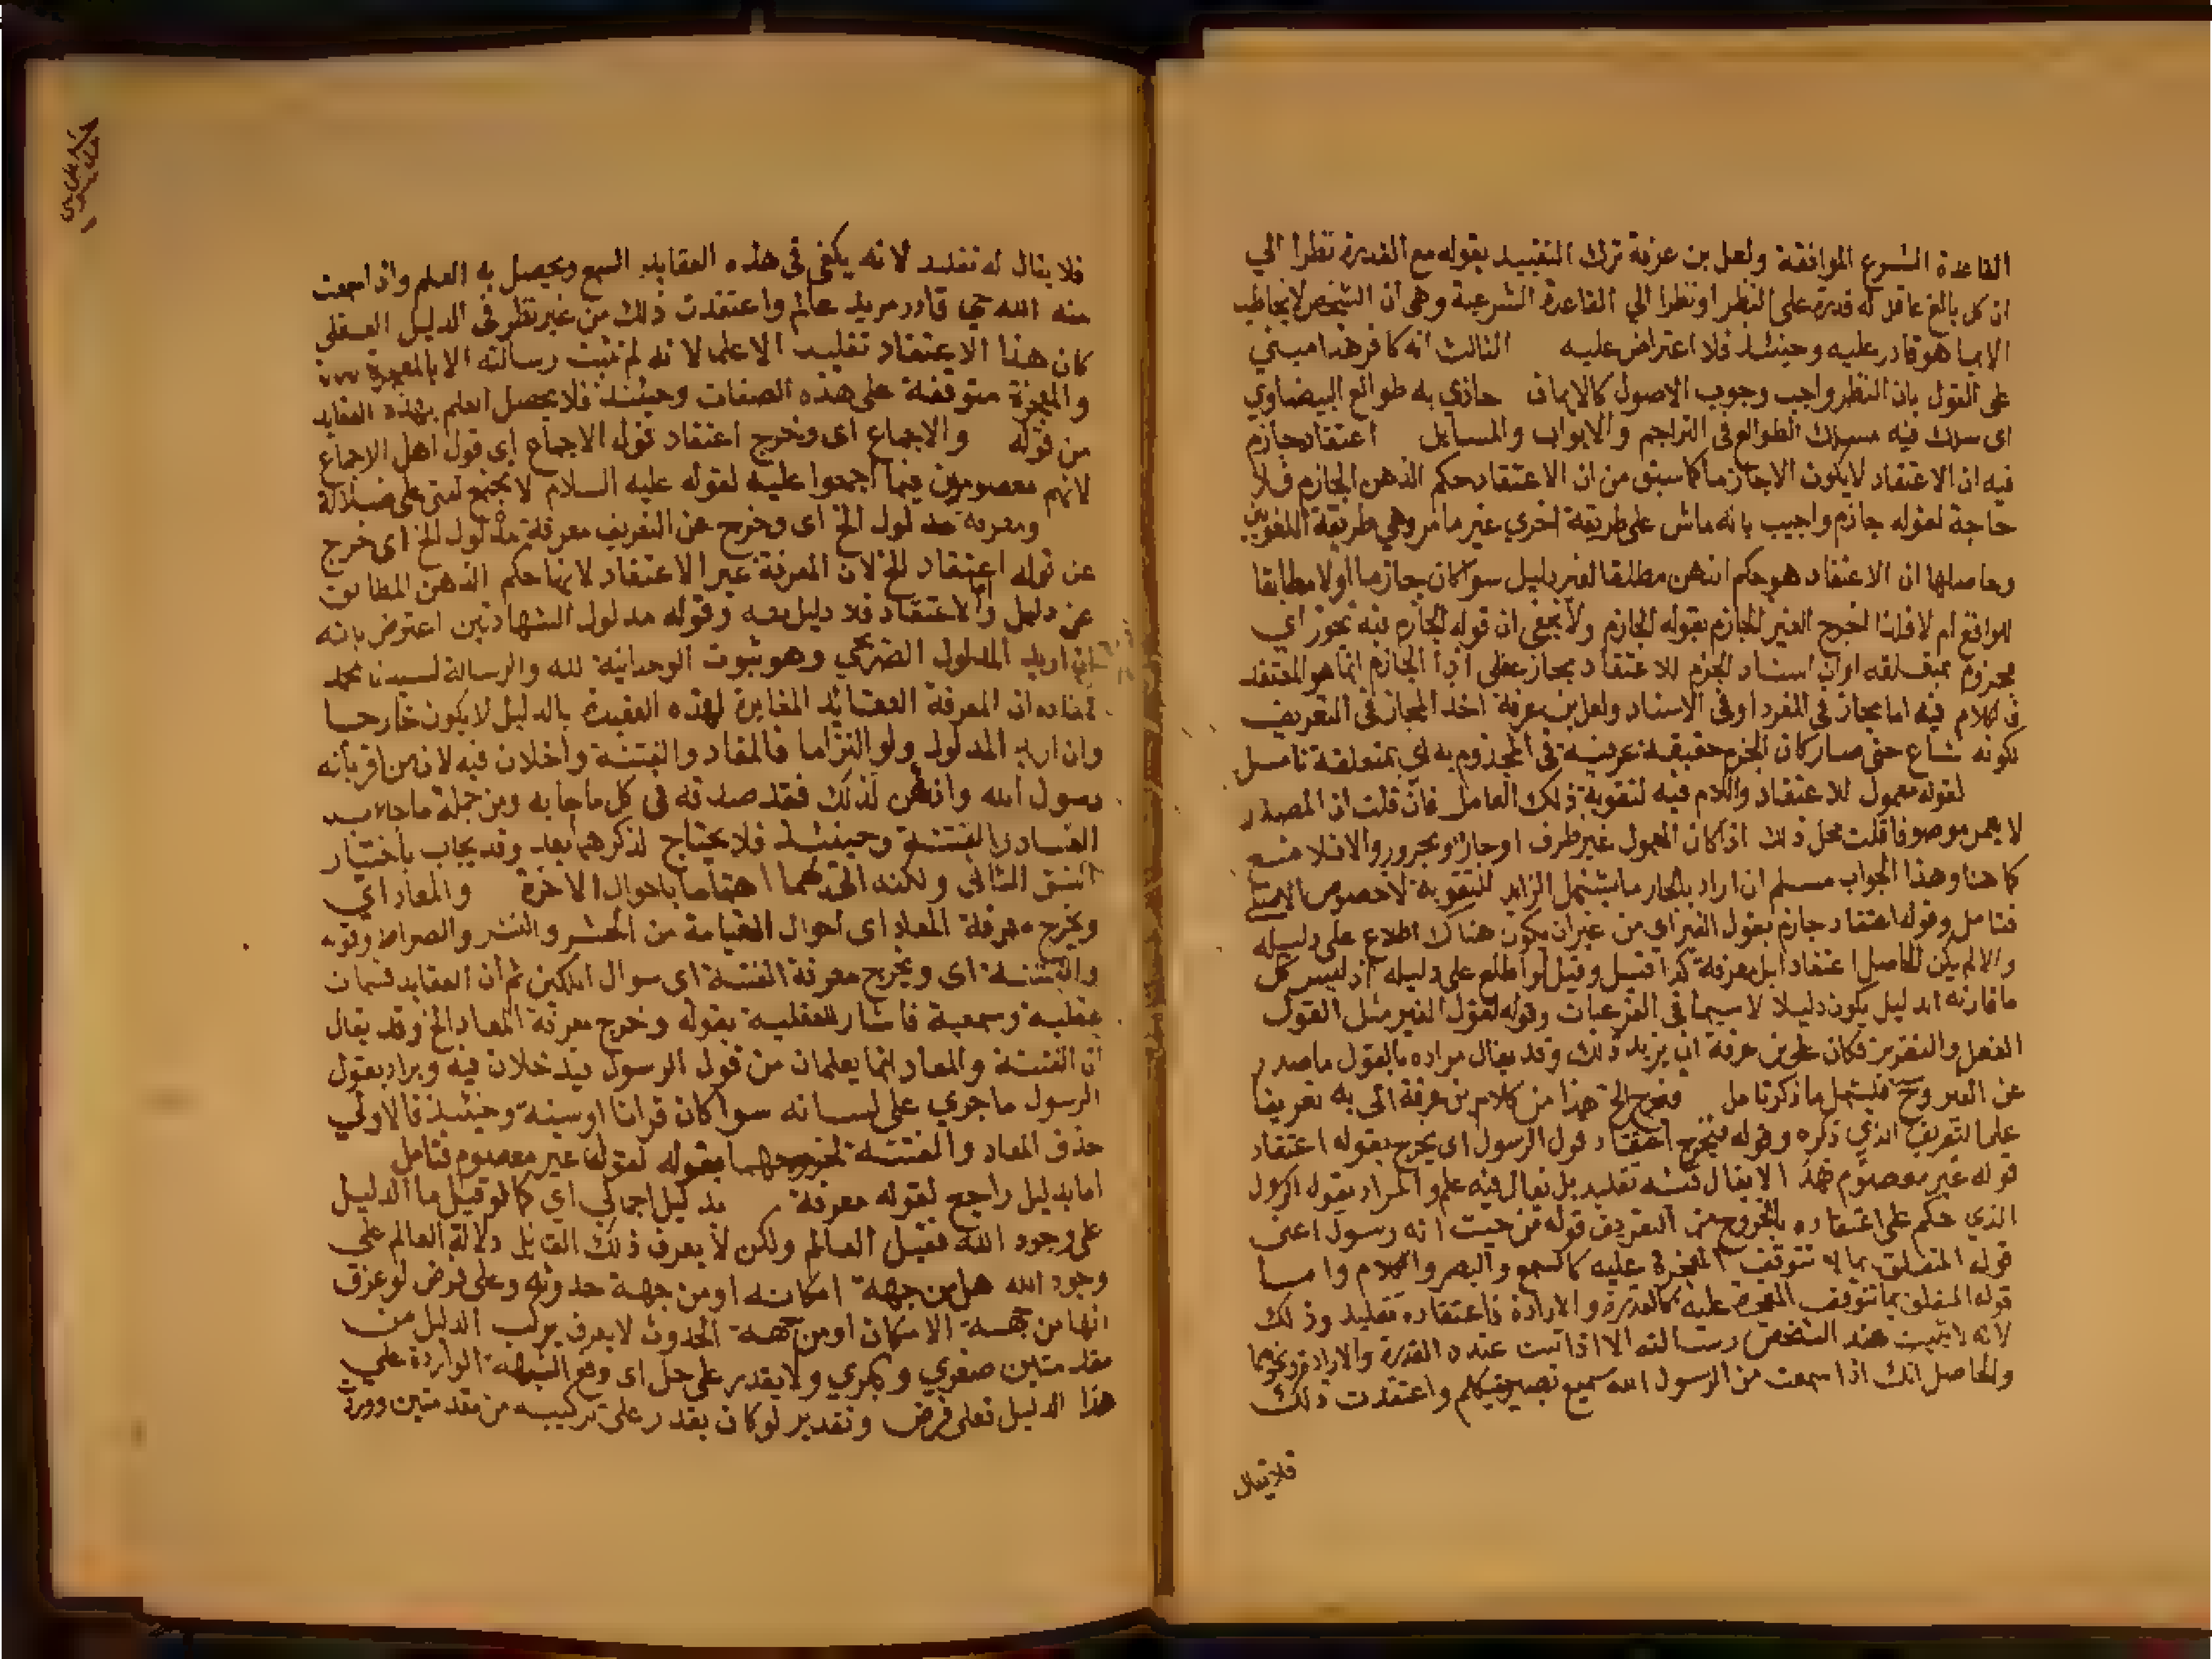 القاعدة الشرع الموافقة ولعل بن عرفة ترك التقييد بقوله مع القدرة نظرا الي
ان كل بالغ عاقل له قدرة على النظر او نظرا الي القاعدة الشرعية وهي ان الشخص لا يخاطب
الا بما هو قادر عليه وحينئذ فلا اعتراض عليه الثالث انه كافر هذا مبني
على القول بان النظر واجب وجوب الاصول كالايمان حاذي به طوالع البيضاوي
اى سلك فيه مسلك الطوالع في التراجم والابواب والمسايل اعتقاد جازم
فيه ان الاعتقاد لا يكون الا جازما كما سبق من ان الاعتقاد حكم الذهن الجازم فلا
حاجة لقوله جازم واجيب بانه ماش على طريقة اخري غير ما مر وهي طريقة اللغويين
وحاصلها ان الاعتقاد هو حكم الذهن مطلقا لغير دليل سوا كان جازما اولا مطابقا
للواقع ام لا فلذا اخرج الغير الجازم بقوله الجازم ولا يخفى ان قوله الجازم فيه تجوز اي
مجزوم بمتعلقه او ان اسناد الجزم للاعتقاد مجاز عقلى اذ الجازم انما هو المعتقد
فالكلام فيه اما مجاز في المفرد او في الاسناد ولعل بن عرفة اخذ المجاز في التعريف
لكونه شاع حتى صار كان الجزم حقيقة عرفية في المجزوم به اي بمتعلقة تامل
لقوله معمول للاعتقاد واللام فيه لتقوية ذلك العامل فان قلت ان المصدر
لا يعمل موصوفا قلت محل ذلك اذا كان المعمول غير ظرف او جار ومجرور والا فلا منع
كما هنا وهذا الجواب مسلم ان اراد بالجار ما يشمل الزايد للتقوية لا خصوص الاصلي
فتامل وقوله اعتقاد جازم بقول الغير اي من غير ان يكون هناك اطلاع على دليله
والا لم يكن الحاصل اعتقادا بل معرفة كذا قيل وقيل لو اطلع على دليله اذ ليس كل
ما قارنه الدليل يكون دليلا لا سيما في الفرعيات وقوله لقول الغير مثل القول
الفعل والتقرير فكان على بن عرفة ان يزيد ذلك وقد يقال مراده بالقول ما صدر
عن الغير وح فيشمل ما ذكر تامل فخرج الخ هذا من كلام بن عرفة اتى به تفريعا
على التعريف الذي ذكره وقوله فيخرج اعتقاد قول الرسول اى يخرج بقوله اعتقاد
قوله غير معصوم فهذا لا يقال فيه تقليد بل يقال فيه علم والمراد بقوله الرسول
الذي حكم على اعتقاده بالخروج من التعريف قوله من حيث انه رسول اعنى
قوله المتعلق بما لا تتوقف المعجزة عليه كالسمع والبصر والكلام واما
قوله المتعلق بما تتوقف المعجزة عليه كالقدرة والارادة فاعتقاده تقليد وذلك
لانه لا يثبت عند الشخص رسالته الا اذا ثبت عنده القدرة والارادة ونحوهما
والحاصل انك اذا سمعت من الرسول الله سميع بصير متكلم واعتقدت ذلك
فلا يقال
فلا يقال له تقليد لانه يكفي في هذه العقايد السمع ويحصل به العلم واذا سمعت
منه الله حي قادر مريد عالم واعتقدت ذلك من غير نظر في الدليل العقلى
كان هذا الاعتقاد تقليد الا علما لانه لم تثبت رسالته الا بالمعجزة
والمعجزة متوقفة على هذه الصفات وحينئذ فلا يحصل العلم بهذه العقايد
من قوله والاجماع اى وخرج اعتقاد قول الاجماع اى قول اهل الاجماع
لانهم معصومون فيما اجمعوا عليه لقوله عليه السلام لا تجتمع امتى على ضلالة
ومعرفة مدلول الخ اى وخرج عن التعريف معرفة مدلول الخ اى خرج
عن قوله اعتقاد الخ لان المعرفة غير الاعتقاد لانها حكم الذهن المطابق
عن دليل والاعتقاد فلا دليل معه وقوله مدلول الشهادتين اعترض بانه
ان اريد المدلول الصريحي وهو ثبوت الوحدانية لله والرسالة لسيدنا محمد
فمفاده ان المعرفة العقائد المغايرة لهذه العقيدة بالدليل لا يكون خارجا
وان اريد المدلول ولو التزاما فالمعاد والفتنة داخلان فيه لان من اقر بانه
رسول الله واذعن لذلك فقد صدقه في كل ما جا به ومن جملة ما جا به
المعاد والفتنة وحينئذ فلا يحتاج لذكرهما بعد وقد يجاب باختيار
الشق الثاني ولكنه اتى بهما اهتماما باحوال الاخرة والمعاد اي
ويخرج معرفة المعاد اى احوال القيامة من الحشر والنشر والصراط وقوله
والفتنة اى ويخرج معرفة الفتنة اى سوال الملكين ثم ان العقايد قسمان
عقلية وسمعية فاشار للعقلية بقوله وخرج معرفة المعاد الخ وقد يقال
ان الفتنة والمعاد انما يعلمان من قول الرسول فيدخلان فيه ويراد بقول
الرسول ما جري على لسانه سوا كان قرانا او سنة وحينئذ فالاولي
حذف المعاد والفتنة لخروجهما بقوله لقول غير معصوم فتامل
اما بدليل راجع لقوله معرفة بدليل اجمالي اي كما لو قيل ما الدليل
على وجود الله فقيل العالم ولكن لا يعرف ذلك القايل دلالة العالم علي
وجود الله هل من جهة امكانه او من جهة حدوثه وعلى فرض لو عرف
انها من جهة الامكان او من جهة الحدوث لا يعرف يركب الدليل من
مقدمتين صغري وكبري ولا يقدر على حل اى دفع الشبهة الواردة علي
هذا الدليل فعلى فرض وتقدير لو كان يقدر على تركيبه من مقدمتين ورد